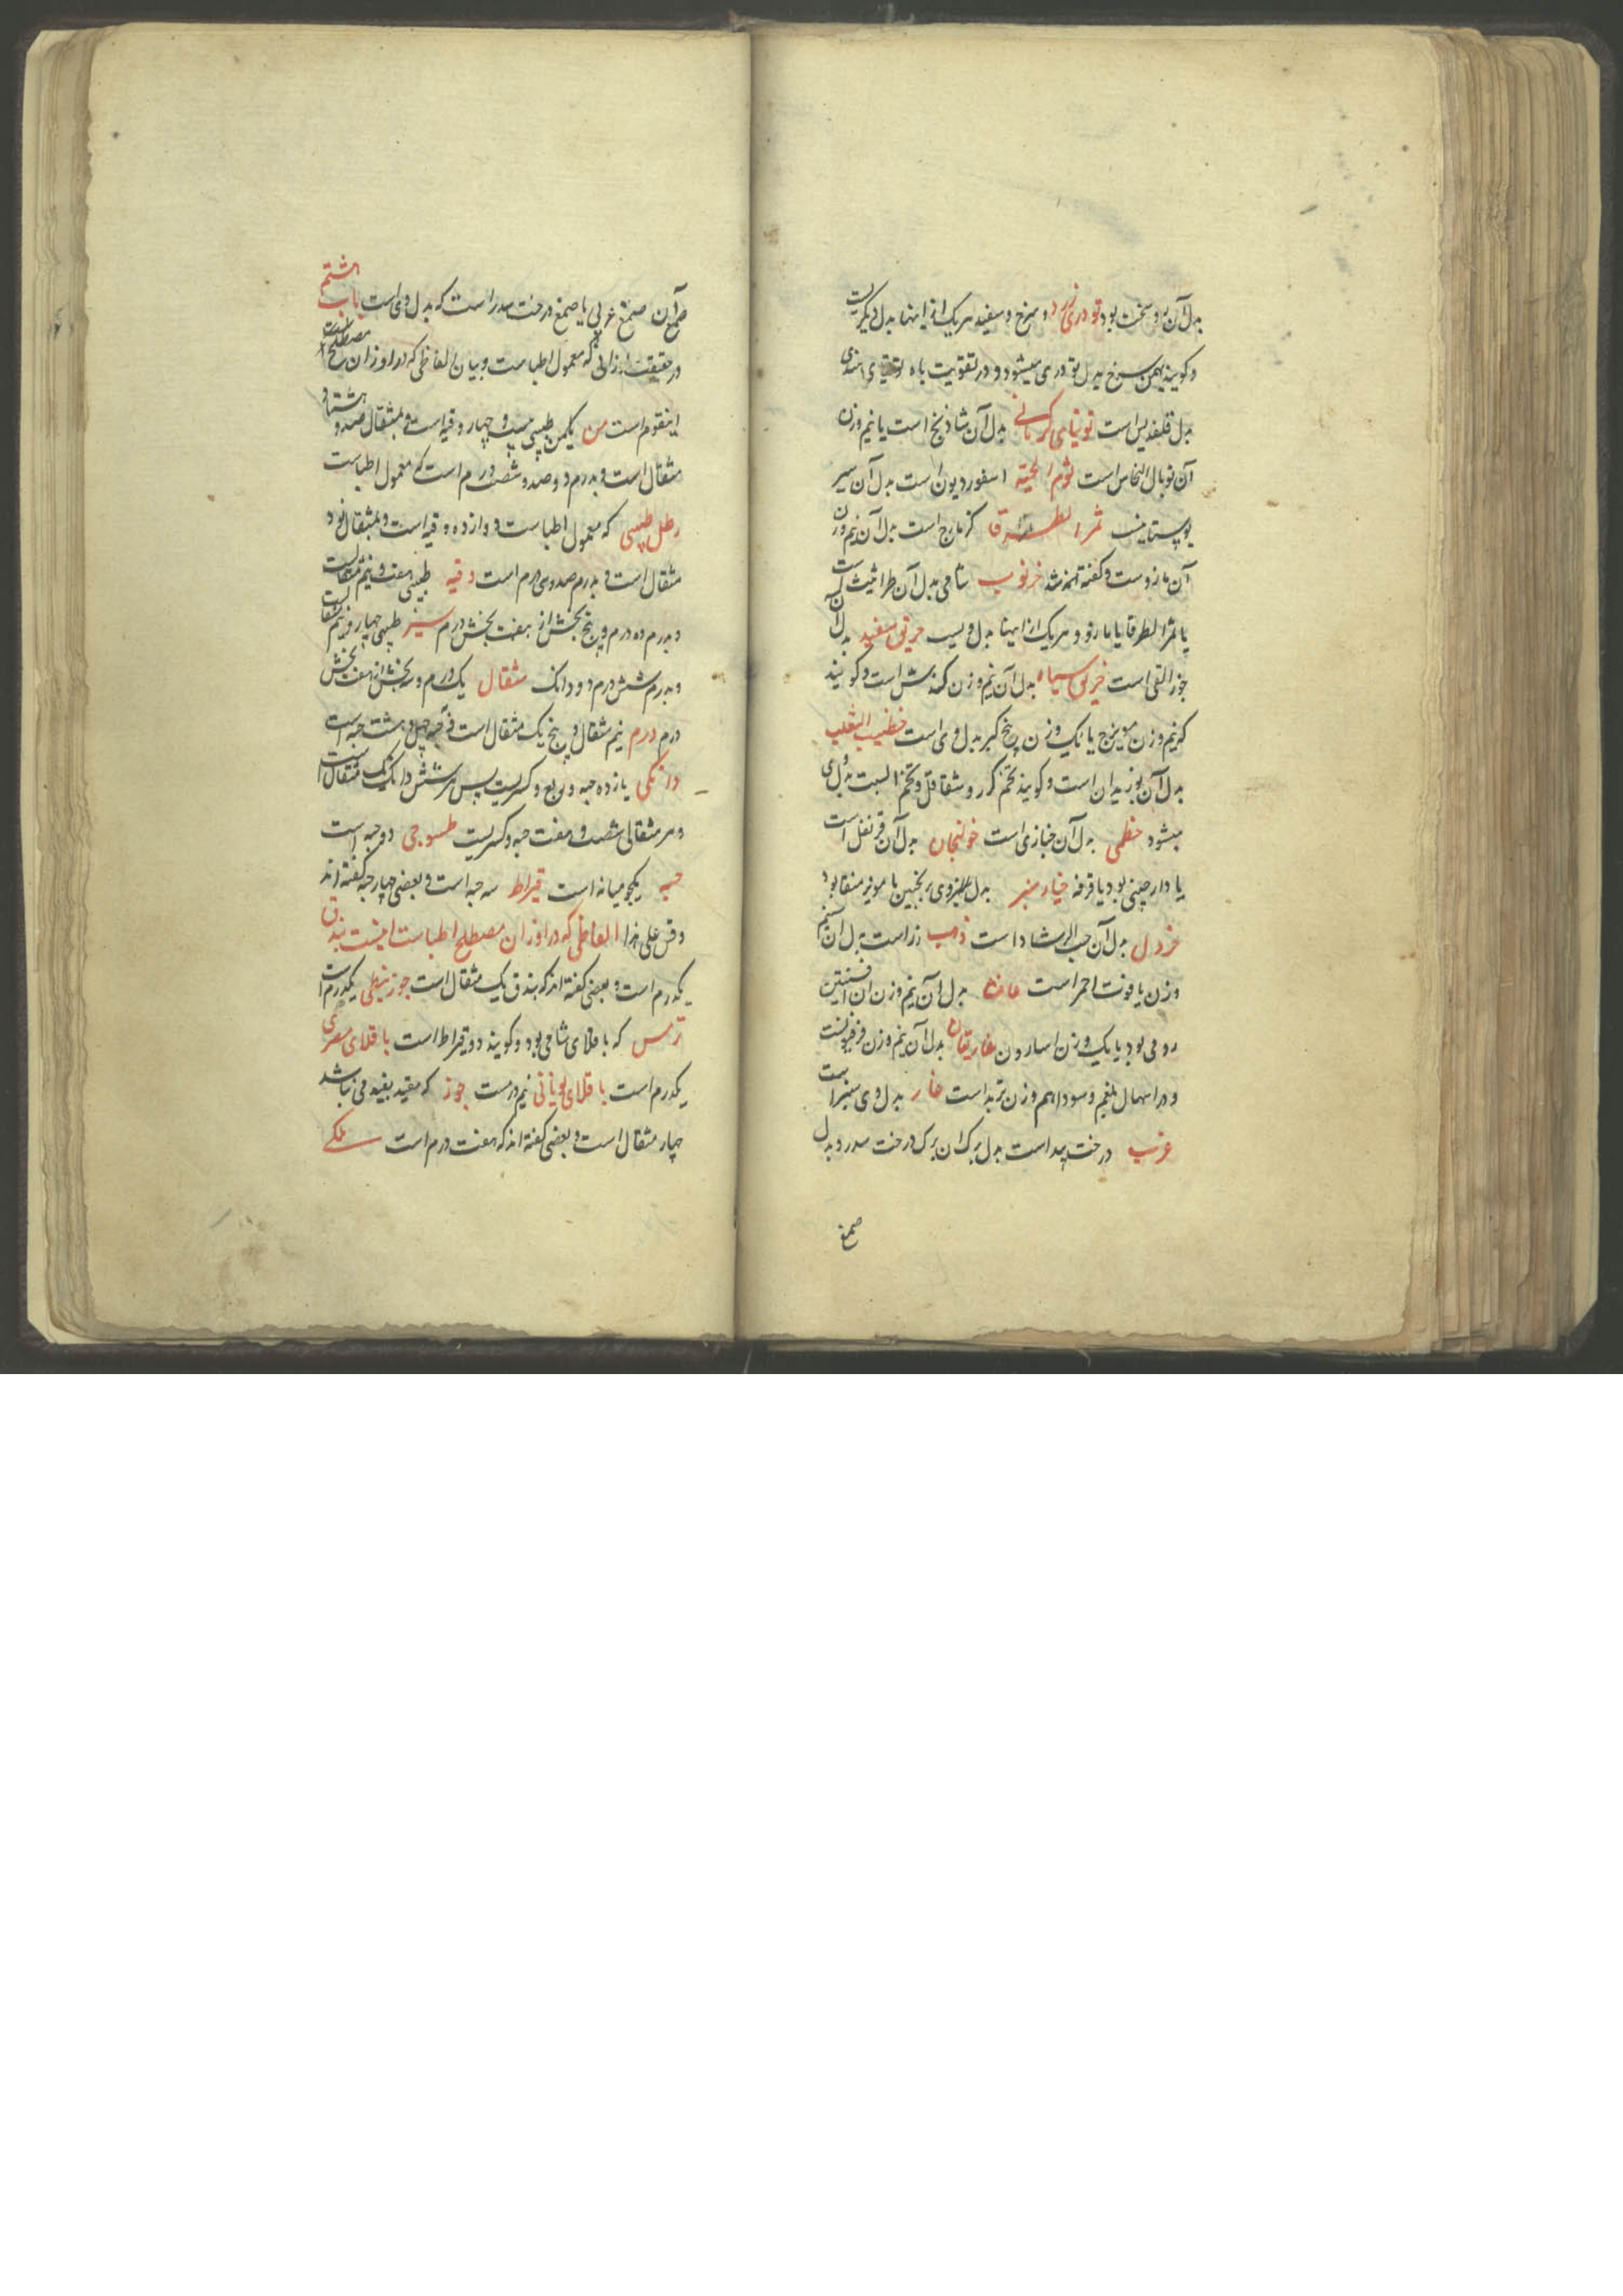 بدل آن بود سخت بود تودری زرد و سرخ و سفید هریک از اینها بدل دیگریست
و گویند بهمن سرخ بدل تودری میشود و در تقویت باه توتیای هندی
بدل قلقدیس است توتیای کرمانی بدل آن شاذنج است یا نیم وزن
آن توبال النحاس است ثوم الحیة اسقوردیون است بدل آن سیر
ثمر الطرفا کزمازج است بدل آن نیم وزن
آن مازوست و گفته اند خرنوب شامی بدل آن طراثیث است
یا ثمر الطرفا یا مازو و هریک از اینها بدل ویست خربق سفید بدل آن
جوز القی است خربق سیاه بدل آن نیم وزن کندش است و گویند
که نیم وزن مویزج یا یک وزن بیخ کبر بدل وی است خصیة الثعلب
بدل آن بوزیدان است و گویند تخم گزر و شقاقل و تخم
میشود خطمی بدل آن خبازی است خولنجان بدل آن قرنفل است
یا دارچینی بود یا قرفه خیارشنبر بدل وی ترنجبین با مویز منقا بود
خردل بدل آن حب الرشاد است ذهب زر است بدل آن نیم
وزن یاقوت احمر است غافث بدل آن نیم وزن آن افسنتین
رومی بود یا یک وزن اسارون غاریقون بدل آن نیم وزن فرفیونست
و در اسهال بلغم و سودا هم وزن تربد است غار بدل وی است
غرب درخت بید است بدل برگ آن برگ درخت سدر و بدل
صمغ
صمغ آن صمغ عربی یا صمغ درخت سدر است که بدل وی است باب هشتم
در حقیقت اوزانی که معمول اطباست و بیان الفاظی که در اوزان مصطلح
اینقوم است من یکمن طبی بیست و چهار وقیه است و بمثقال صد و هشتاد
مثقال است و بدرم دوصد و شصت درم است که معمول اطباست
رطل طبی که معمول اطباست دوازده وقیه است و بمثقال نود
مثقال است و بدرم صد و سی درم است وقیه طبی هفت و نیم مثقالست
و بدرم ده درم و پنج بخش از هفت بخش درم سیر طبی چهار و نیم مثقالست
و بدرم شش درم و دو دانگ مثقال یک درم و سه بخش از هفت بخش
درم درم نیم مثقال و پنج یک مثقال است و بحبه چهل و هشت حبه است
دانگی یازده حبه و ربع و کسریست پس هر شش دانگ یک مثقال است
و هر مثقالی شصت و هفت حبه و کسریست طسوجی دو حبه است
حبه یکجو میانه است قیراط سه حبه است و بعضی چهار حبه گفته اند
و قس علی هذا الفاظی که در اوزان مصطلح اطباست اینست بندق
یکدرم است و بعضی گفته اند که بندق یک مثقال است جوز نبطی یکدرم است
ترمس که باقلای شامی بود و گویند دو قیراط است باقلای مصری
یکدرم است باقلای یونانی نیم درمست جوز که مقید بقید می نباشد
چهار مثقال است و بعضی گفته اند که هفت درم است